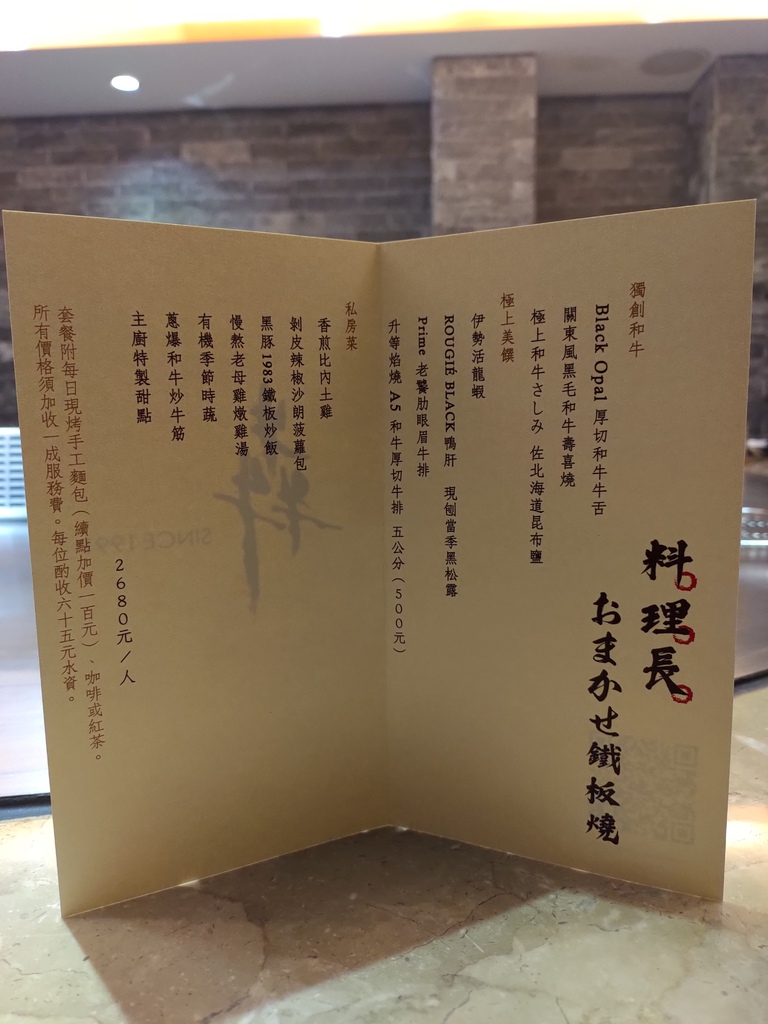 料理長
おまかせ鐵板燒
獨創和牛
Black Opal 厚切和牛牛舌
關東風黑毛和牛壽喜燒
極上和牛さしみ 佐北海道昆布鹽
極上美饌
伊勢活龍蝦
ROUGIÉ BLACK 鴨肝 現刨當季黑松露
Prime 老饕肋眼眉牛排
升等焰燒 A5 和牛厚切牛排 五公分（500元）
私房菜
香煎比內土雞
剝皮辣椒沙朗菠蘿包
黑豚1983鐵板炒飯
慢熬老母雞燉雞湯
有機季節時蔬
蔥爆和牛炒牛筋
主廚特製甜點
2680元／人
套餐附每日現烤手工麵包（續點加價一百元）、咖啡或紅茶。
所有價格須加收一成服務費。每位酌收六十五元水資。